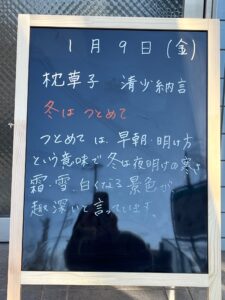 1月9日(金)
枕草子 清少納言
冬は つとめて
つとめて は、早朝・明け方
という意味で 冬は夜明けの寒さ
霜・雪、白くなる景色が
趣深いと言っています。